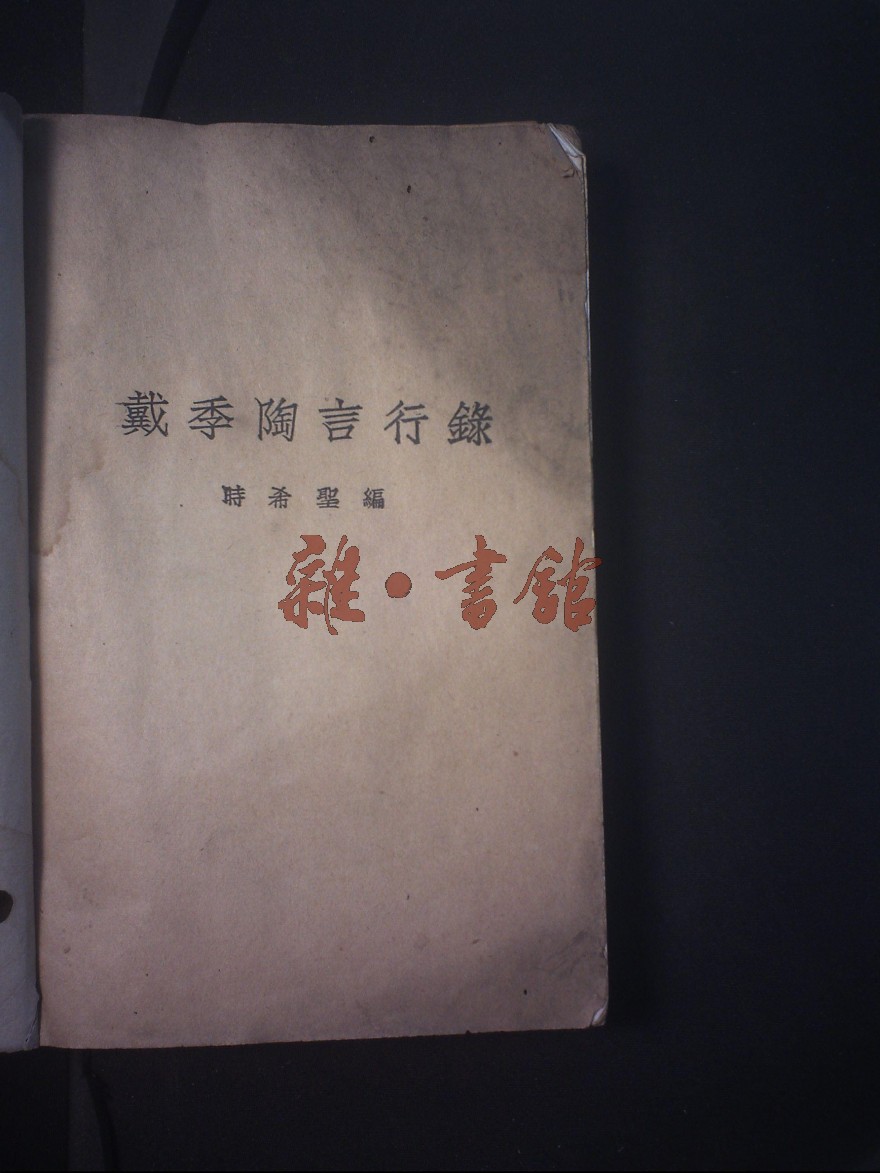 戴季陶言行錄
時希聖編
雜·書館